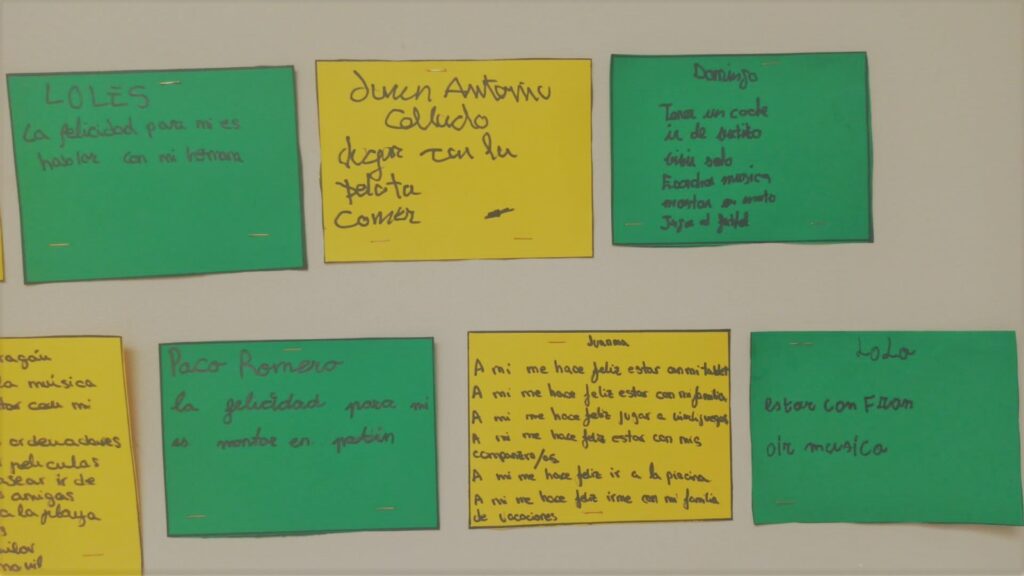 LOLES
La felicidad para mi es
hablar con mi hermana
Juan Antonio
Collado
Jugar con la
pelota
Comer
Domingo
Tener un coche
ir de
vivir solo
Escuchar musica
montar en moto
Jugar al futbol
ragón
la música
con mi
ordenadores
peliculas
pasear ir de
amigas
a la playa
Paco Romero
la felicidad para mi
es montar en patín
Juanma
A mi me hace feliz estar con mi tablet
A mi me hace feliz estar con mi familia
A mi me hace feliz jugar a
A mi me hace feliz estar con mis
compañero/as
A mi me hace feliz ir a la piscina
A mi me hace feliz irme con mi familia
de vacaciones
LOLO
estar con FRAN
oir musica